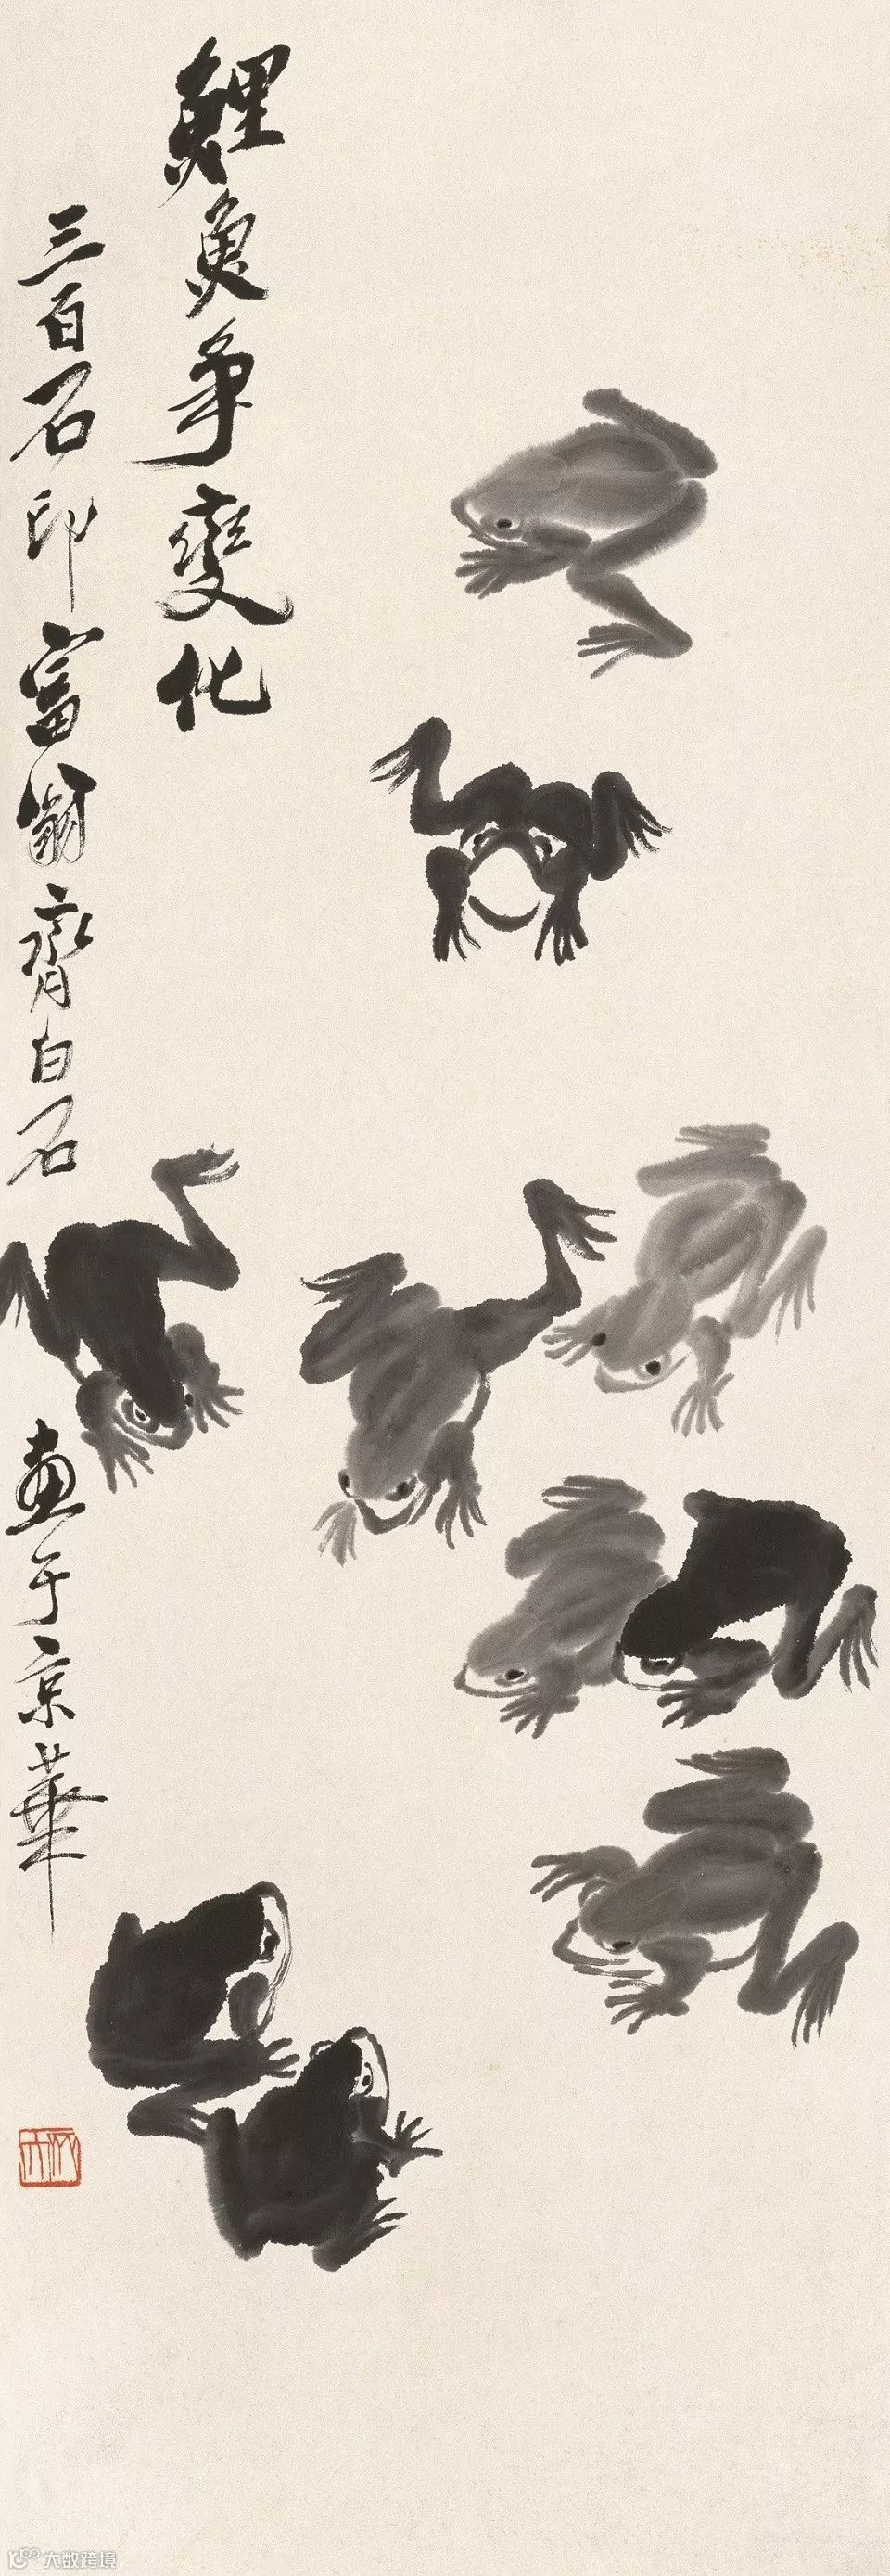 鯉魚爭變化
三百石印富翁齊白石
畫于京華
大数跨境